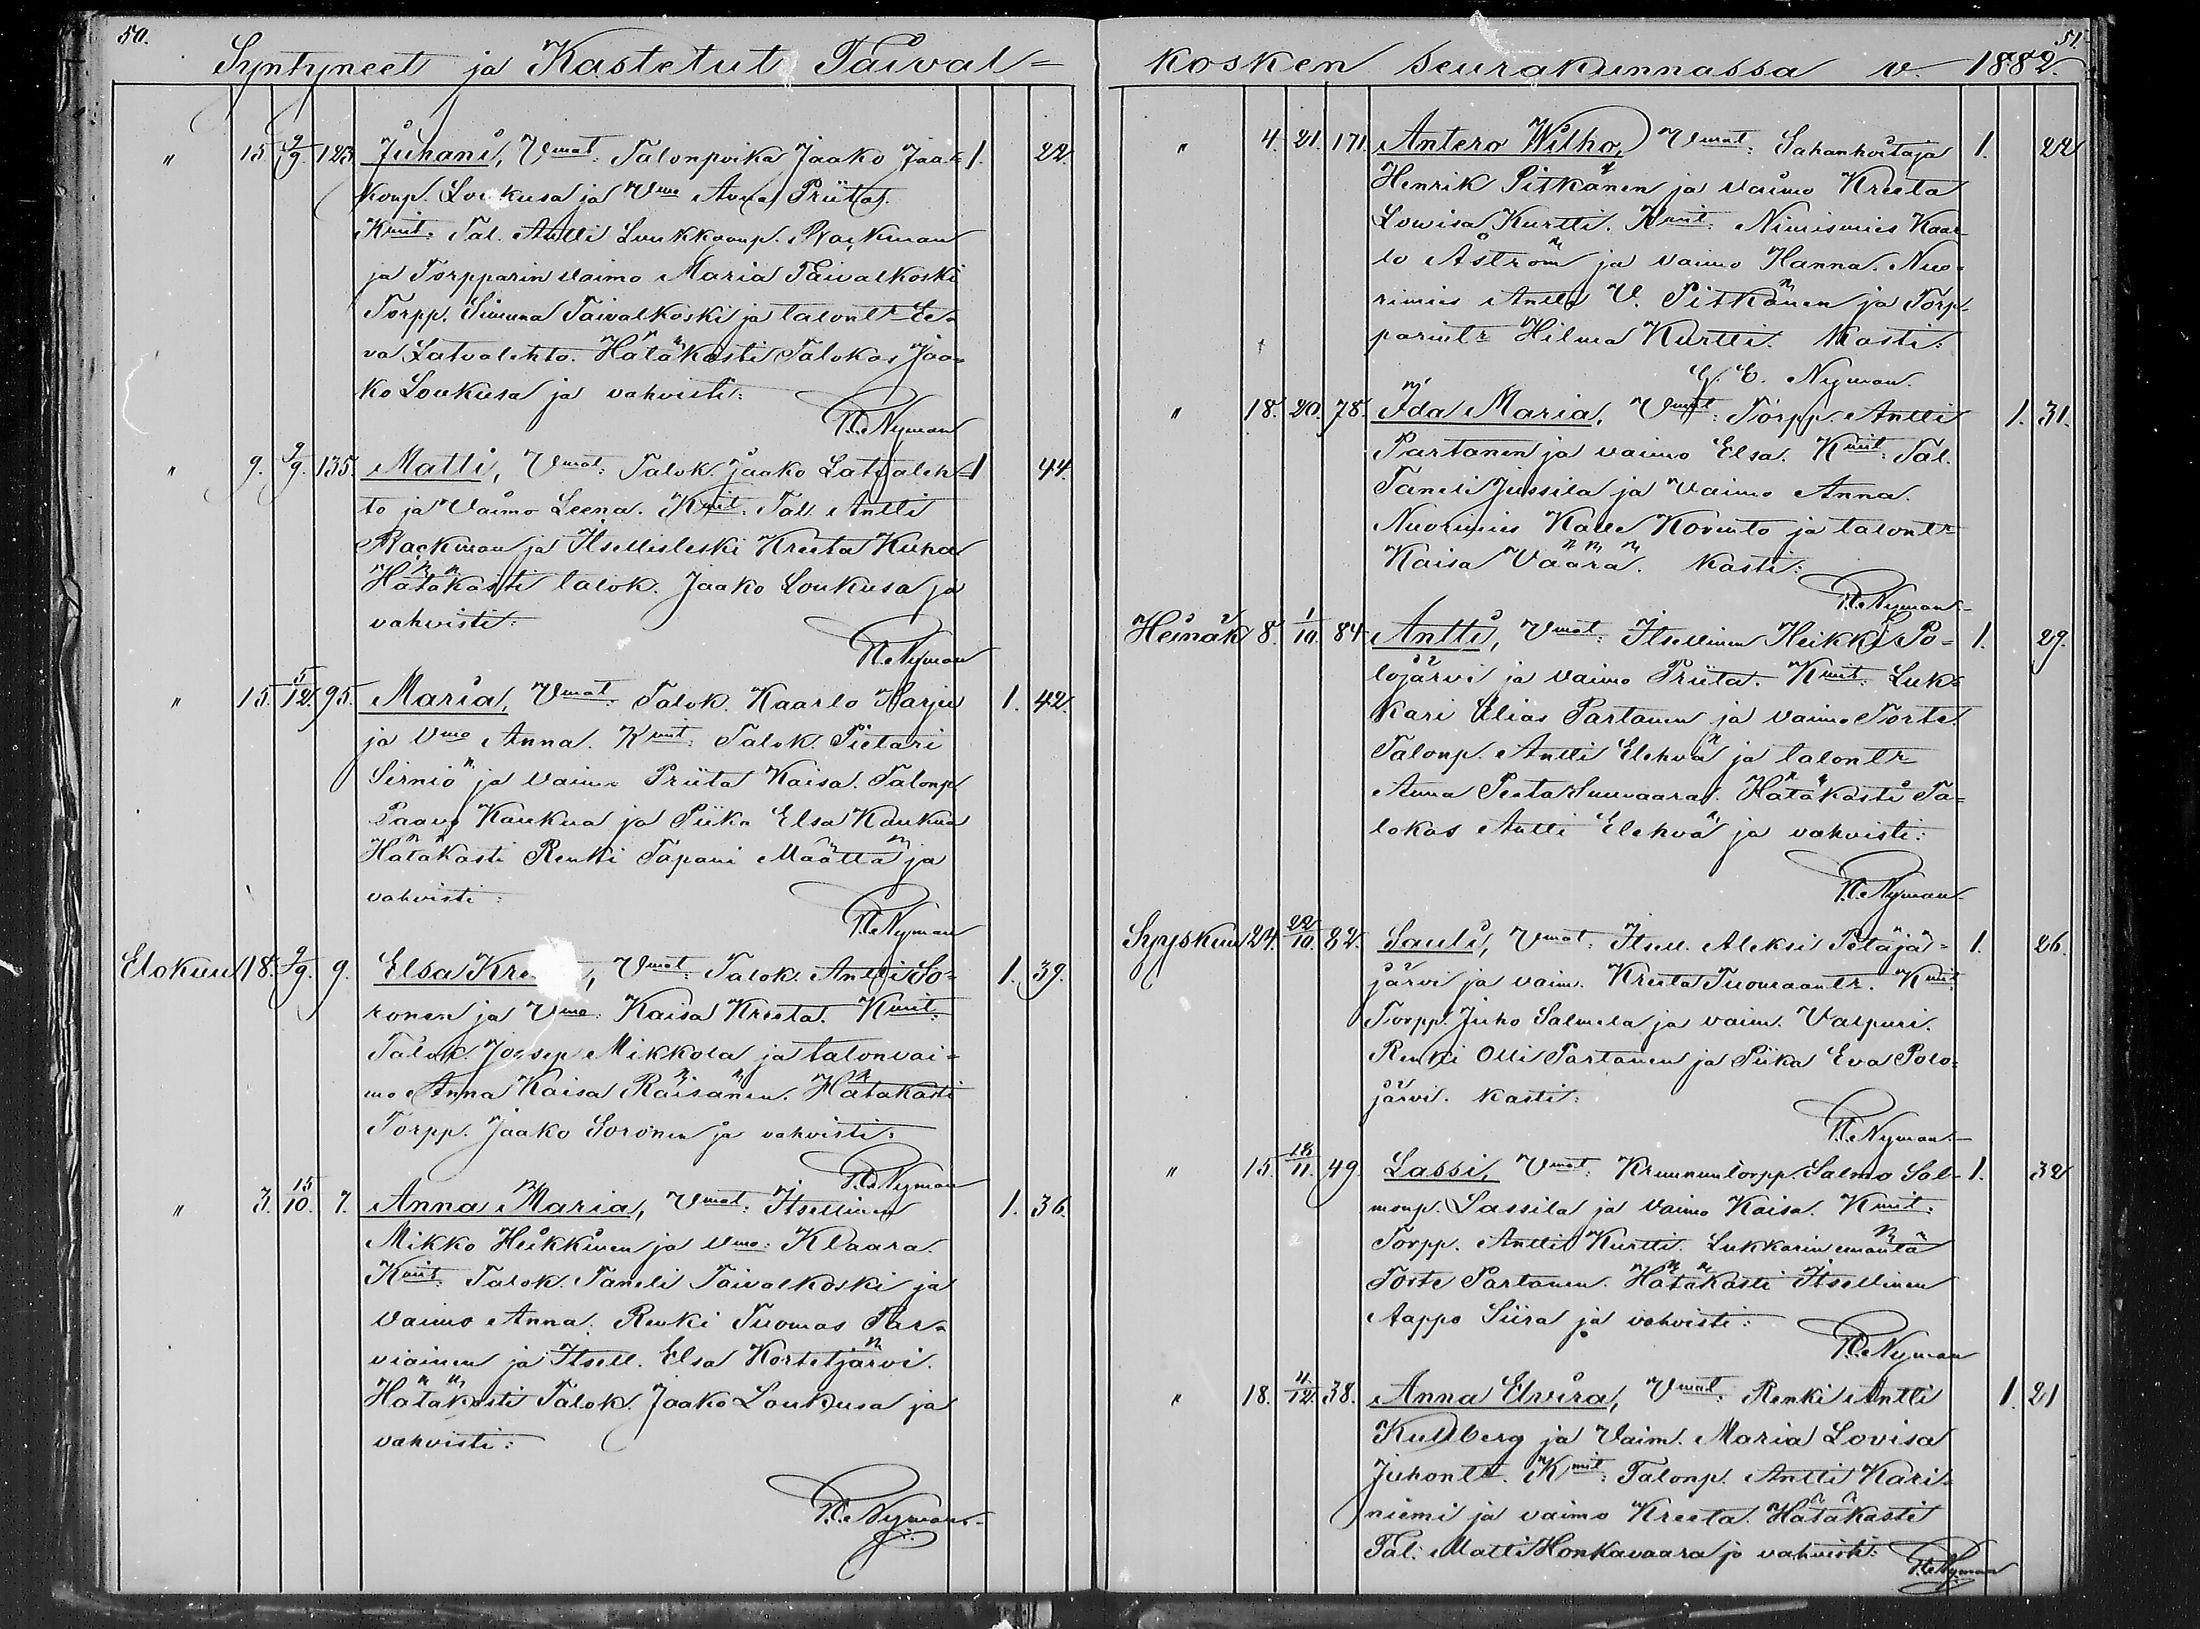 50.
Syntyneet ja Kastetut Taival=
" 15 9/9 123 Juhani, Vmat: Talonpoika Jaako Jaa= 1. 22.
konp. Loukusa ja Vmo Anna Priita.
Kmit: Tal. Antti Luukkoanp. Rackman
ja Torpparin vaimo Maria Taivalkoski
Torpp. Simuna Taivalkoski ja talontr Ee=
va Latvalehto. Hätäkasti Talokas Jaa=
ko Loukusa ja vahvisti:
Nyman
" 9. 9/9. 135. Matti, Vmat: Talok. Jaako Latvaleh= 1 44.
to ja Vaimo Leena. Kmit: Tal. Antti
Rackman ja Itsellisleski Kreeta Kuha
Hätäkasti talok. Jaako Loukusa ja
vahvisti:
Nyman
" 15. 5/12. 95. Maria, Vmat: Talok. Kaarlo Harju 1. 42.
ja Vmo Anna. Kmit: Talok. Pietari
Sirniö ja vaimo Priita Kaisa. Talonp.
Paavo Kaukua ja Piika Elsa Kaukua
Hätäkasti Renki Tapani Määttä ja
vahvisti:
Nyman
Elokuu 18. 9/9. 9. Elsa Kre , Vmat: Talok. Antti So= 1. 39.
ronen ja Vmo: Kaisa Kreeta. Kmit:
Talok. Joosep Mikkola ja talonvai=
mo Anna Kaisa Räisänen. Hätäkasti
Torpp. Jaako Soronen ja vahvisti:
Nyman
" 3. 15/10. 7. Anna Maria, Vmat: Itsellinen 1. 36.
Mikko Heikkinen ja Vmo: Klaara.
Kmit: Talok. Taneli Taivalkoski ja
vaimo Anna. Renki Tuomas Tar=
viainen ja Itsell. Elsa Kortetjärvi.
Hätäkasti Talok. Jaako Loukusa ja
vahvisti:
Nyman
51.
kosken seurakunnassa v. 1882.
" 4. 21. 171. Antero Wilho, Vmat: Sahanhoitaja 1. 22
Henrik Pitkänen ja vaimo Kreeta
Lowisa Kurtti. Kmit: Nimismies Kaar=
lo Åström ja vaimo Hanna. Nuo=
rimies Antti V. Pitkänen ja Torp=
parintr Hilma Kurtti. Kasti:
G. E. Nyman.
" 18. 20. 78. Ida Maria, Vmat: Torpp. Antti 1. 31.
Partanen ja vaimo Elsa. Kmit: Tal.
Taneli Jussila ja Vaimo Anna.
Nuorimies Kalle Kovinto ja talontr
Kaisa Vaara. Kasti:
Nyman
Heinäk 8. 1/10. 84 Antti, Vmat: Itsellinen Heikki Po= 1. 29.
lojärvi ja vaimo Priita. Kmit: Luk=
kari Elias Partanen ja vaimo Torte.
Talonp. Antti Elehvä ja talontr
Anna Peeta Suuvaara. Hätäkasti Ta=
lokas Antti Elehvä ja vahvisti:
Nyman
Syyskuu 24. 22/10. 82. Sauli, Vmat: Itsell. Aleksi Petäjä= 1. 26.
järvi ja vaim. Kreeta Tuomaantr. Kmit:
Torpp. Juho Salmela ja vaim. Valpuri.
Renki Olli Partanen ja Piika Eva Polo=
järvi. Kasti:
Nyman
" 15. 18/11. 49. Lassi, Vmat: Kruununtorpp. Salmo Sal= 1. 32
monp. Lassila ja Vaimo Kaisa. Kmit:
Torpp. Antti Kurtti. Lukkarin emäntä
Torte Partanen. Hätäkasti Itsellinen
Aappo Siira ja vahvisti:
Nyman
" 18. 4/12. 38. Anna Elvira, Vmat: Renki Antti 1. 21
Kullberg ja Vaim. Maria Lovisa
Juhontr. Kmit: Talonp. Antti Kari=
niemi ja vaimo Kreeta. Hätäkasti
Tal. Matti Honkavaara ja vahvisti:
Nyman